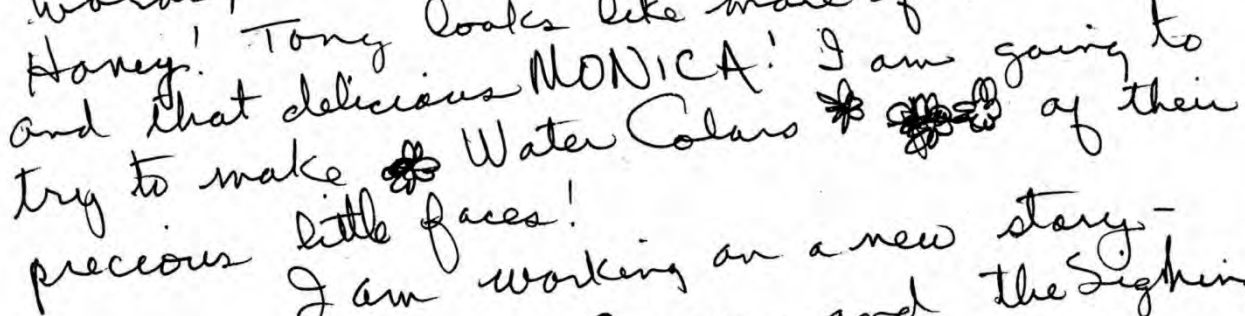 Honey! Tony looks like more of
and that delicious MONICA! I am going to
try to make Water Colors of their
precious little faces!
I am working on a new story-
and the Sighin